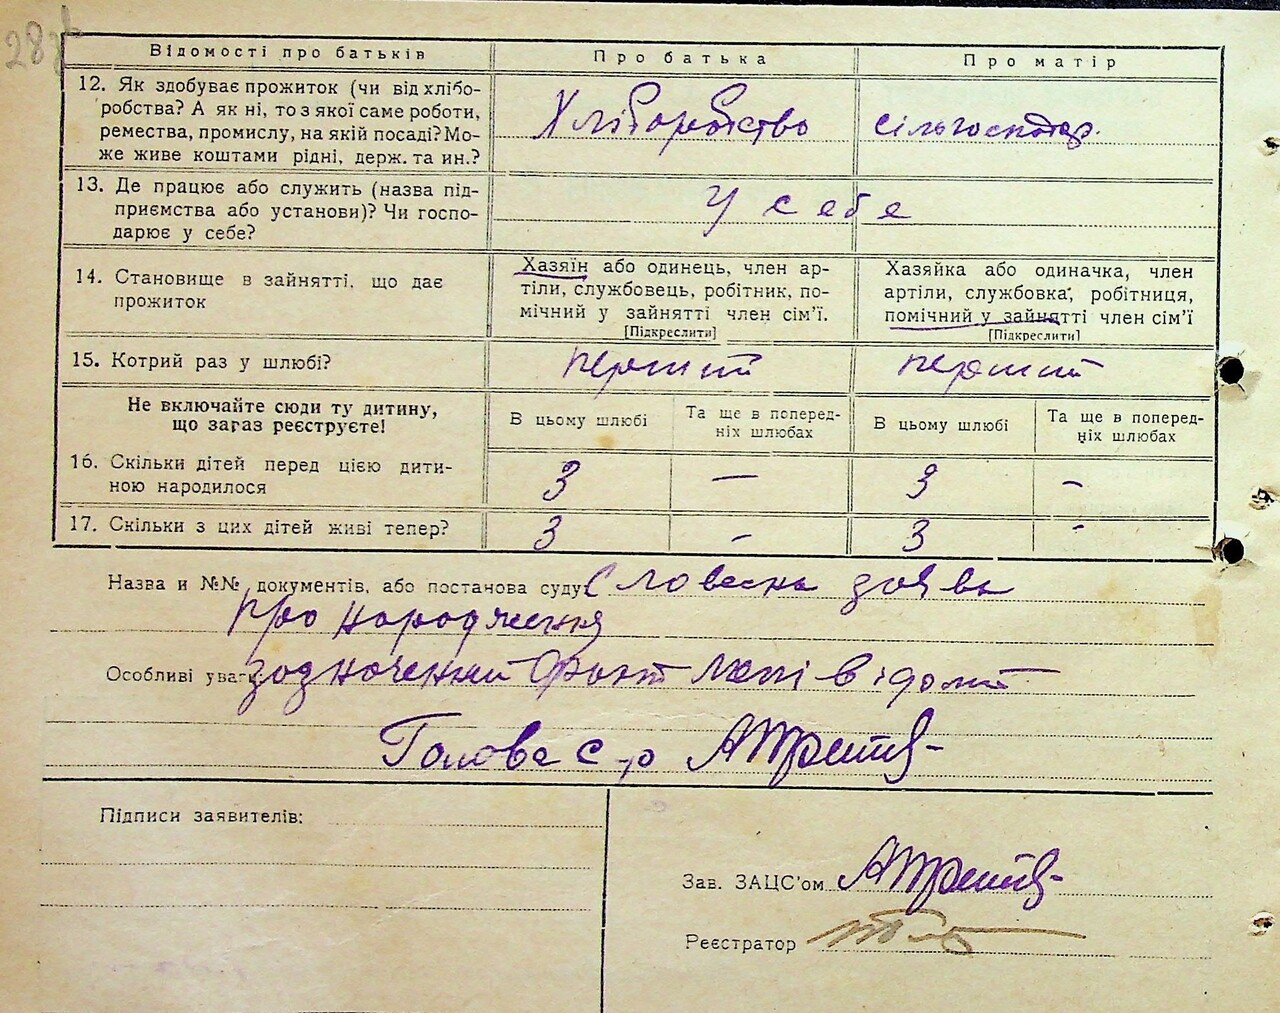 28зв
Відомості про батьків
Про батька
Про матір
12. Як здобуває прожиток (чи від хлібо-
робства? А як ні, то з якої саме роботи,
ремества, промислу, на якій посаді? Мо-
же живе коштами рідні, держ. та ин.?
Хліборобство
сільгосподар.
13. Де працює або служить (назва під-
приємства або установи)? Чи госпо-
дарює у себе?
У себе
14. Становище в зайнятті, що дає
прожиток
Хазяїн або одинець, член ар-
тіли, службовець, робітник, по-
мічний у зайнятті член сім'ї.
[Підкреслити]
Хазяйка або одиначка, член
артіли, службовка, робітниця,
помічний у зайнятті член сім'ї
[Підкреслити]
15. Котрий раз у шлюбі?
перший
перший
Не включайте сюди ту дитину,
що зараз реєструєте!
В цьому шлюбі
Та ще в поперед-
ніх шлюбах
В цьому шлюбі
Та ще в поперед-
ніх шлюбах
16. Скільки дітей перед цією дити-
ною народилося
3 — 3 -
17. Скільки з цих дітей живі тепер?
3 - 3 -
Назва и №№ документів, або постанова суду Словесна заява
про народження
Особливі уваги: зазначений факт мені відомий
Голова с-р
Підписи заявителів:
Зав. ЗАЦС'ом
Реєстратор